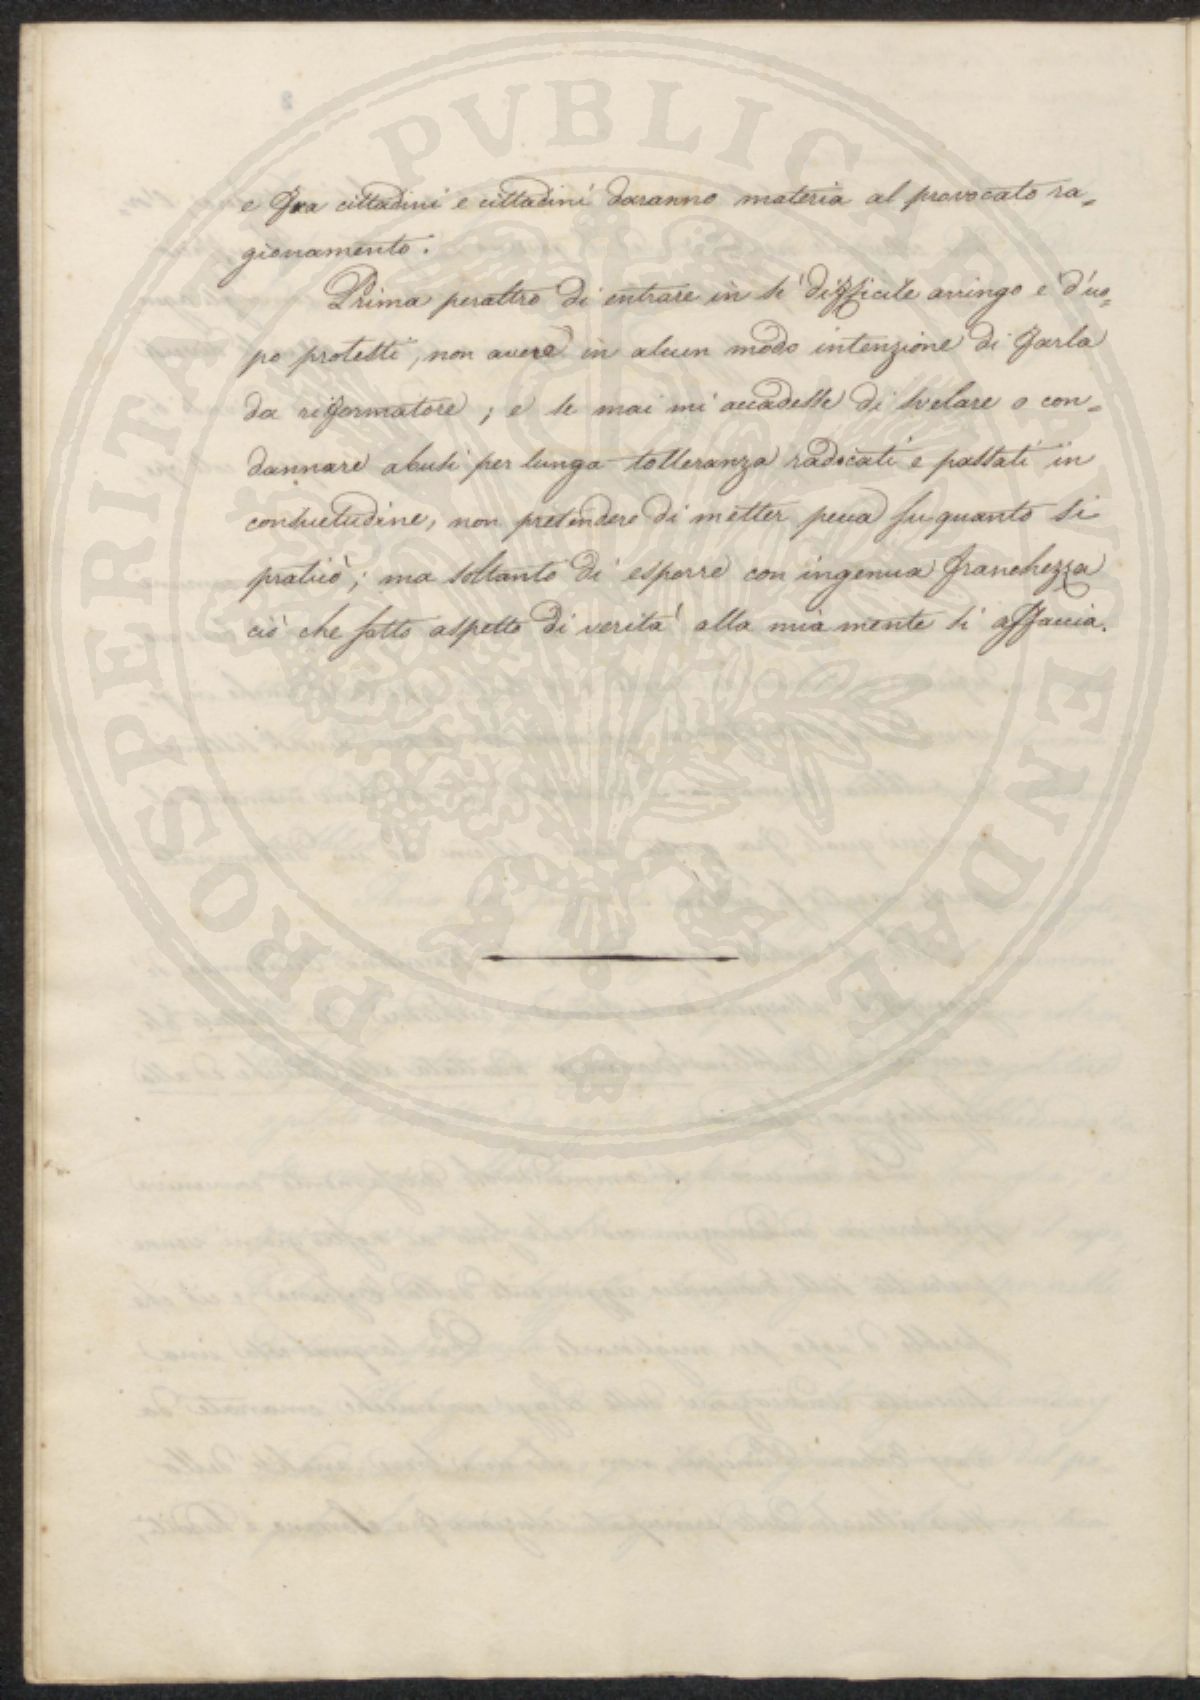 PROSPERITATI PVBLICAE AVGENDAE
e fra cittadini e cittadini daranno materia al provocato ra=
gionamento.
Prima peraltro di entrare in sì difficile arringo è d'uo=
po protesti, non avere in alcun modo intenzione di farla
da riformatore; e se mai mi accadesse di svelare o con=
dannare abusi per lunga tolleranza radicati e passati in
consuetudine, non pretendere di metter pecca su quanto si
praticò; ma soltanto di esporre con ingenua franchezza
ciò che sotto aspetto di verità alla mia mente si affaccia.